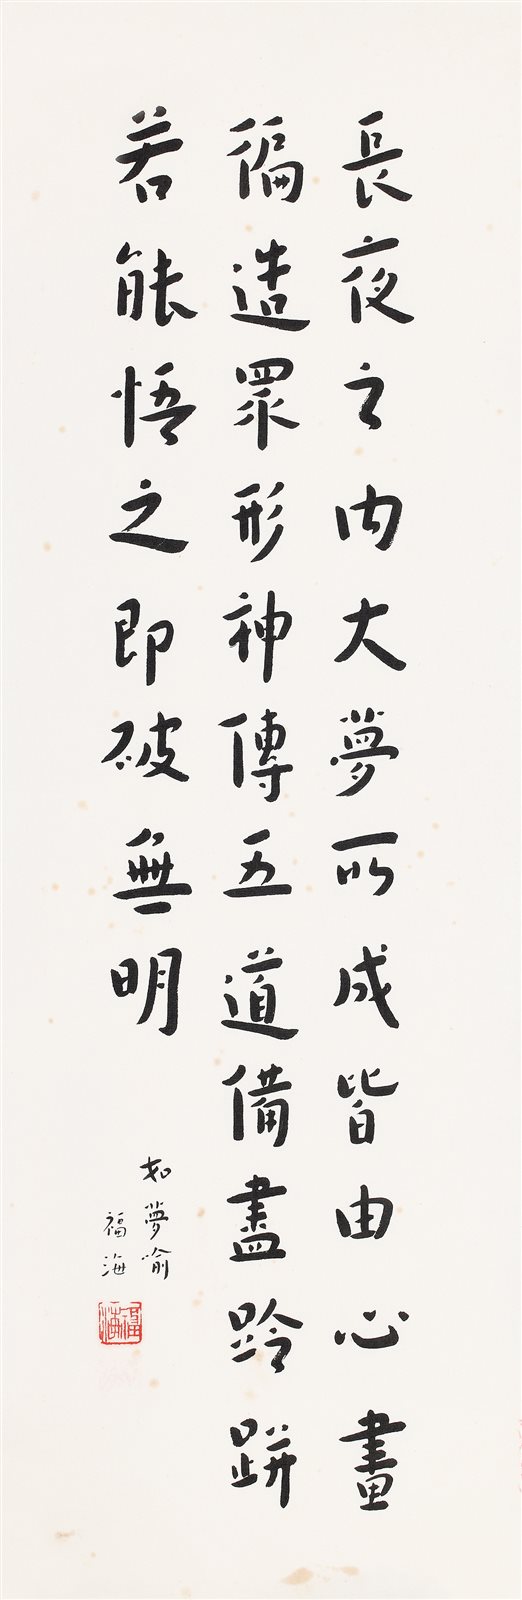 長夜之內大夢所成皆由心畫
徧造眾形神傳五道備盡跉跰
若能悟之即破無明
如夢喻
福海
福海